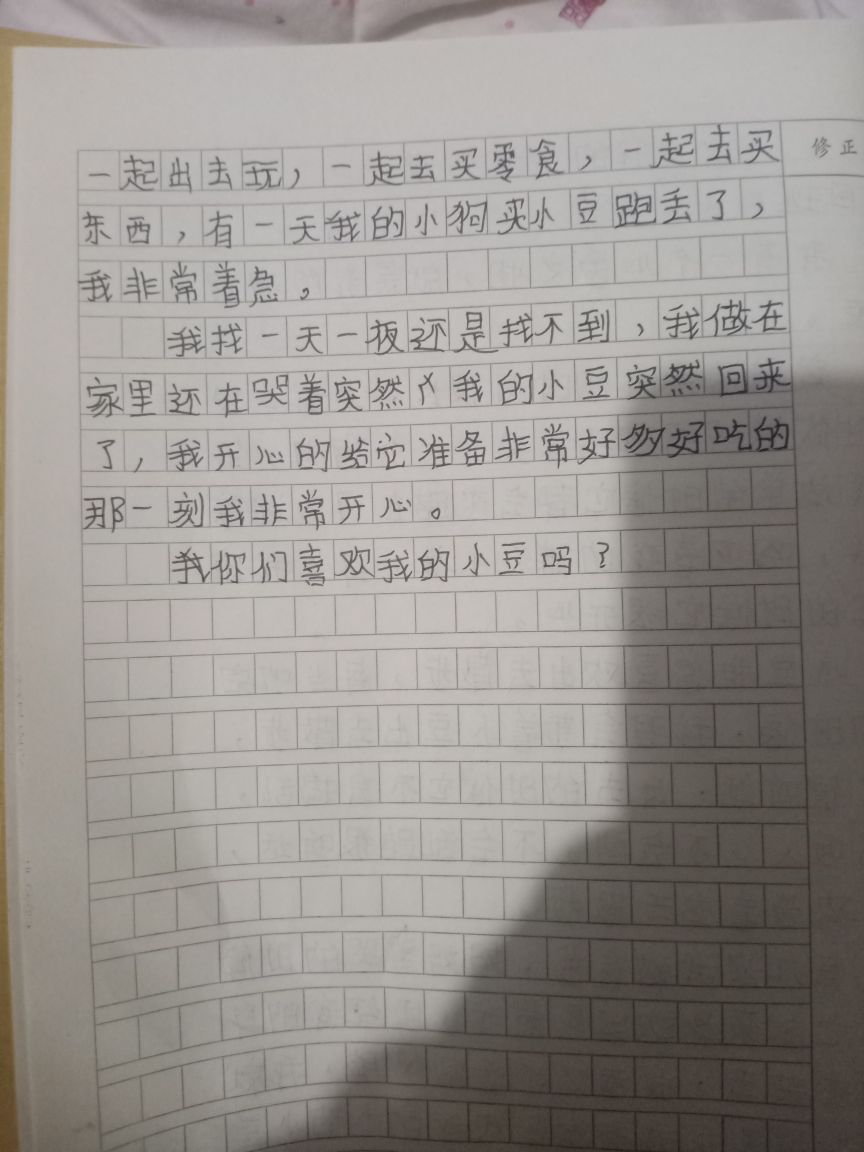 修正
一起出去玩，一起去买零食，一起去买
东西，有一天我的小狗买小豆跑丢了，
我非常着急。
我找一天一夜还是找不到，我做在
家里还在哭着突然我的小豆突然回来
了，我开心的给它准备非常好多好吃的
那一刻我非常开心。
我你们喜欢我的小豆吗？